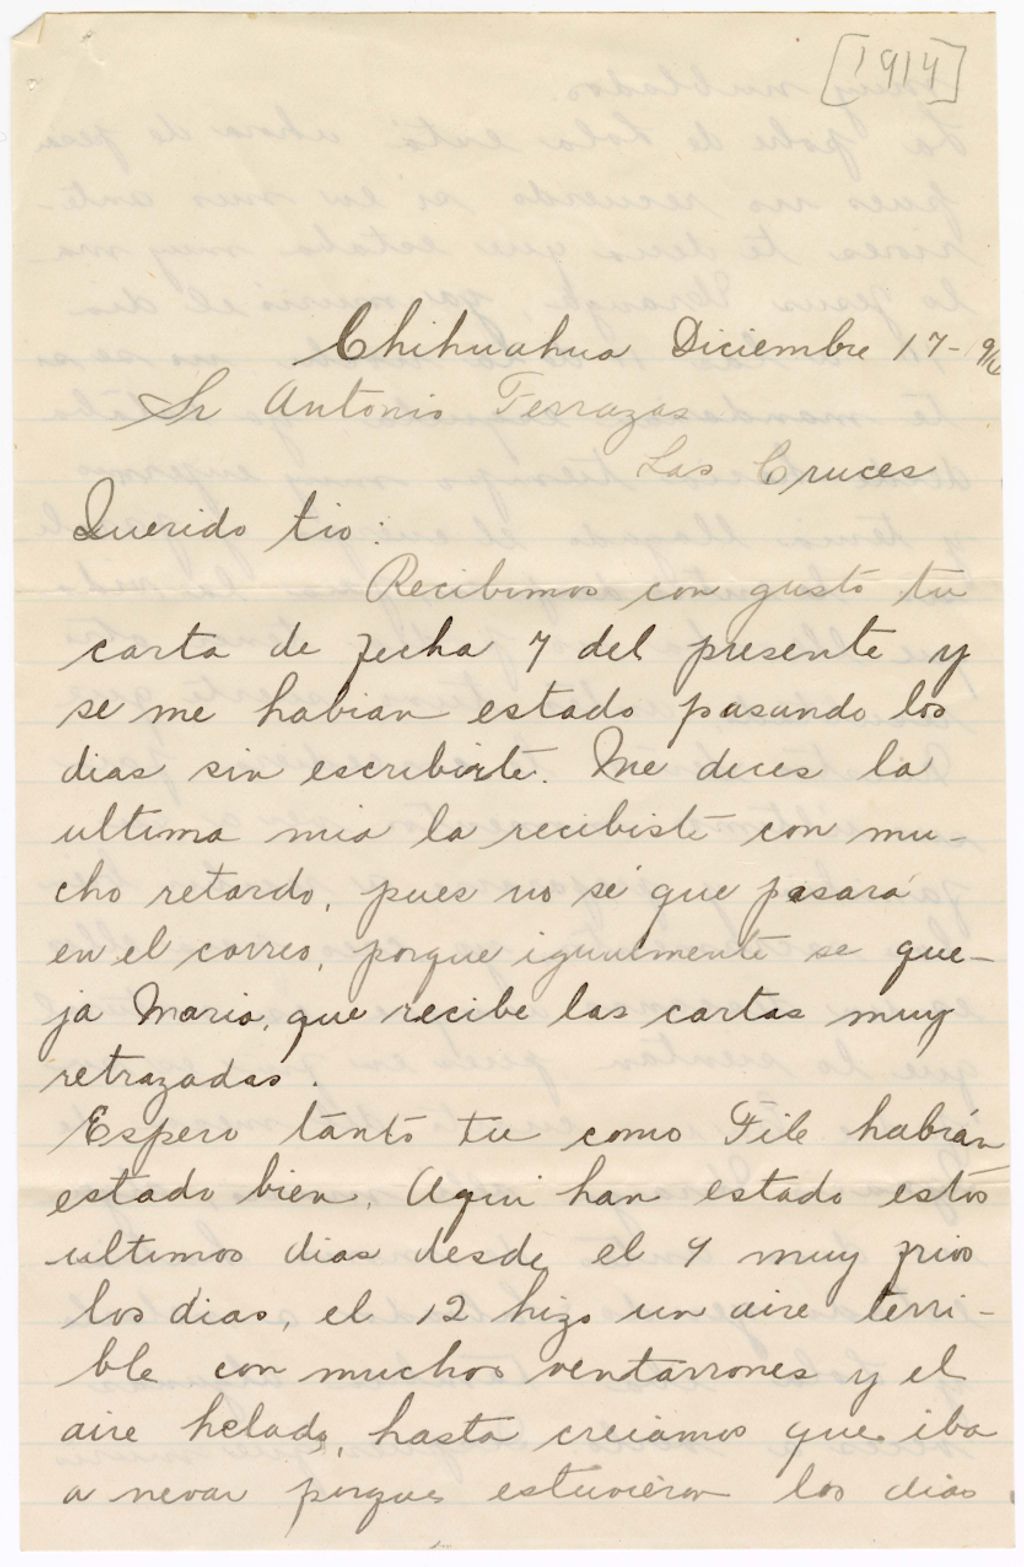 [1914]
Chihuahua Diciembre 17-
Sr Antonio Terrazas
Las Cruces
Querido tio:
Recibimos con gusto tu
carta de fecha 7 del presente y
se me habian estado pasando los
dias sin escribirte. Me dices la
ultima mia la recibiste con mu-
cho retardo, pues no sé que pasará
en el correo, porque igualmente se que-
ja Maria, que recibe las cartas muy
retrazadas.
Espero tanto tu como File habrán
estado bien. Aqui han estado estos
ultimos dias desde el 9 muy frios
los dias, el 12 hizo un aire terri-
ble con muchos ventarrones y el
aire helado, hasta creiamos que iba
a nevar porque estuvieron los dias